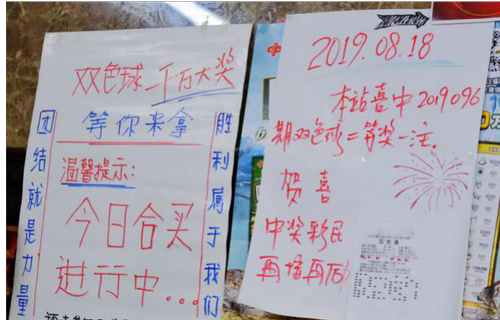 双色球二千万大奖
等你来拿
温馨提示:
今日合买
进行中...
团结就是力量
胜利属于我们
2019.08.18
本站喜中2019096
期双色球二等奖一注.
贺喜
中奖彩民
再接再励